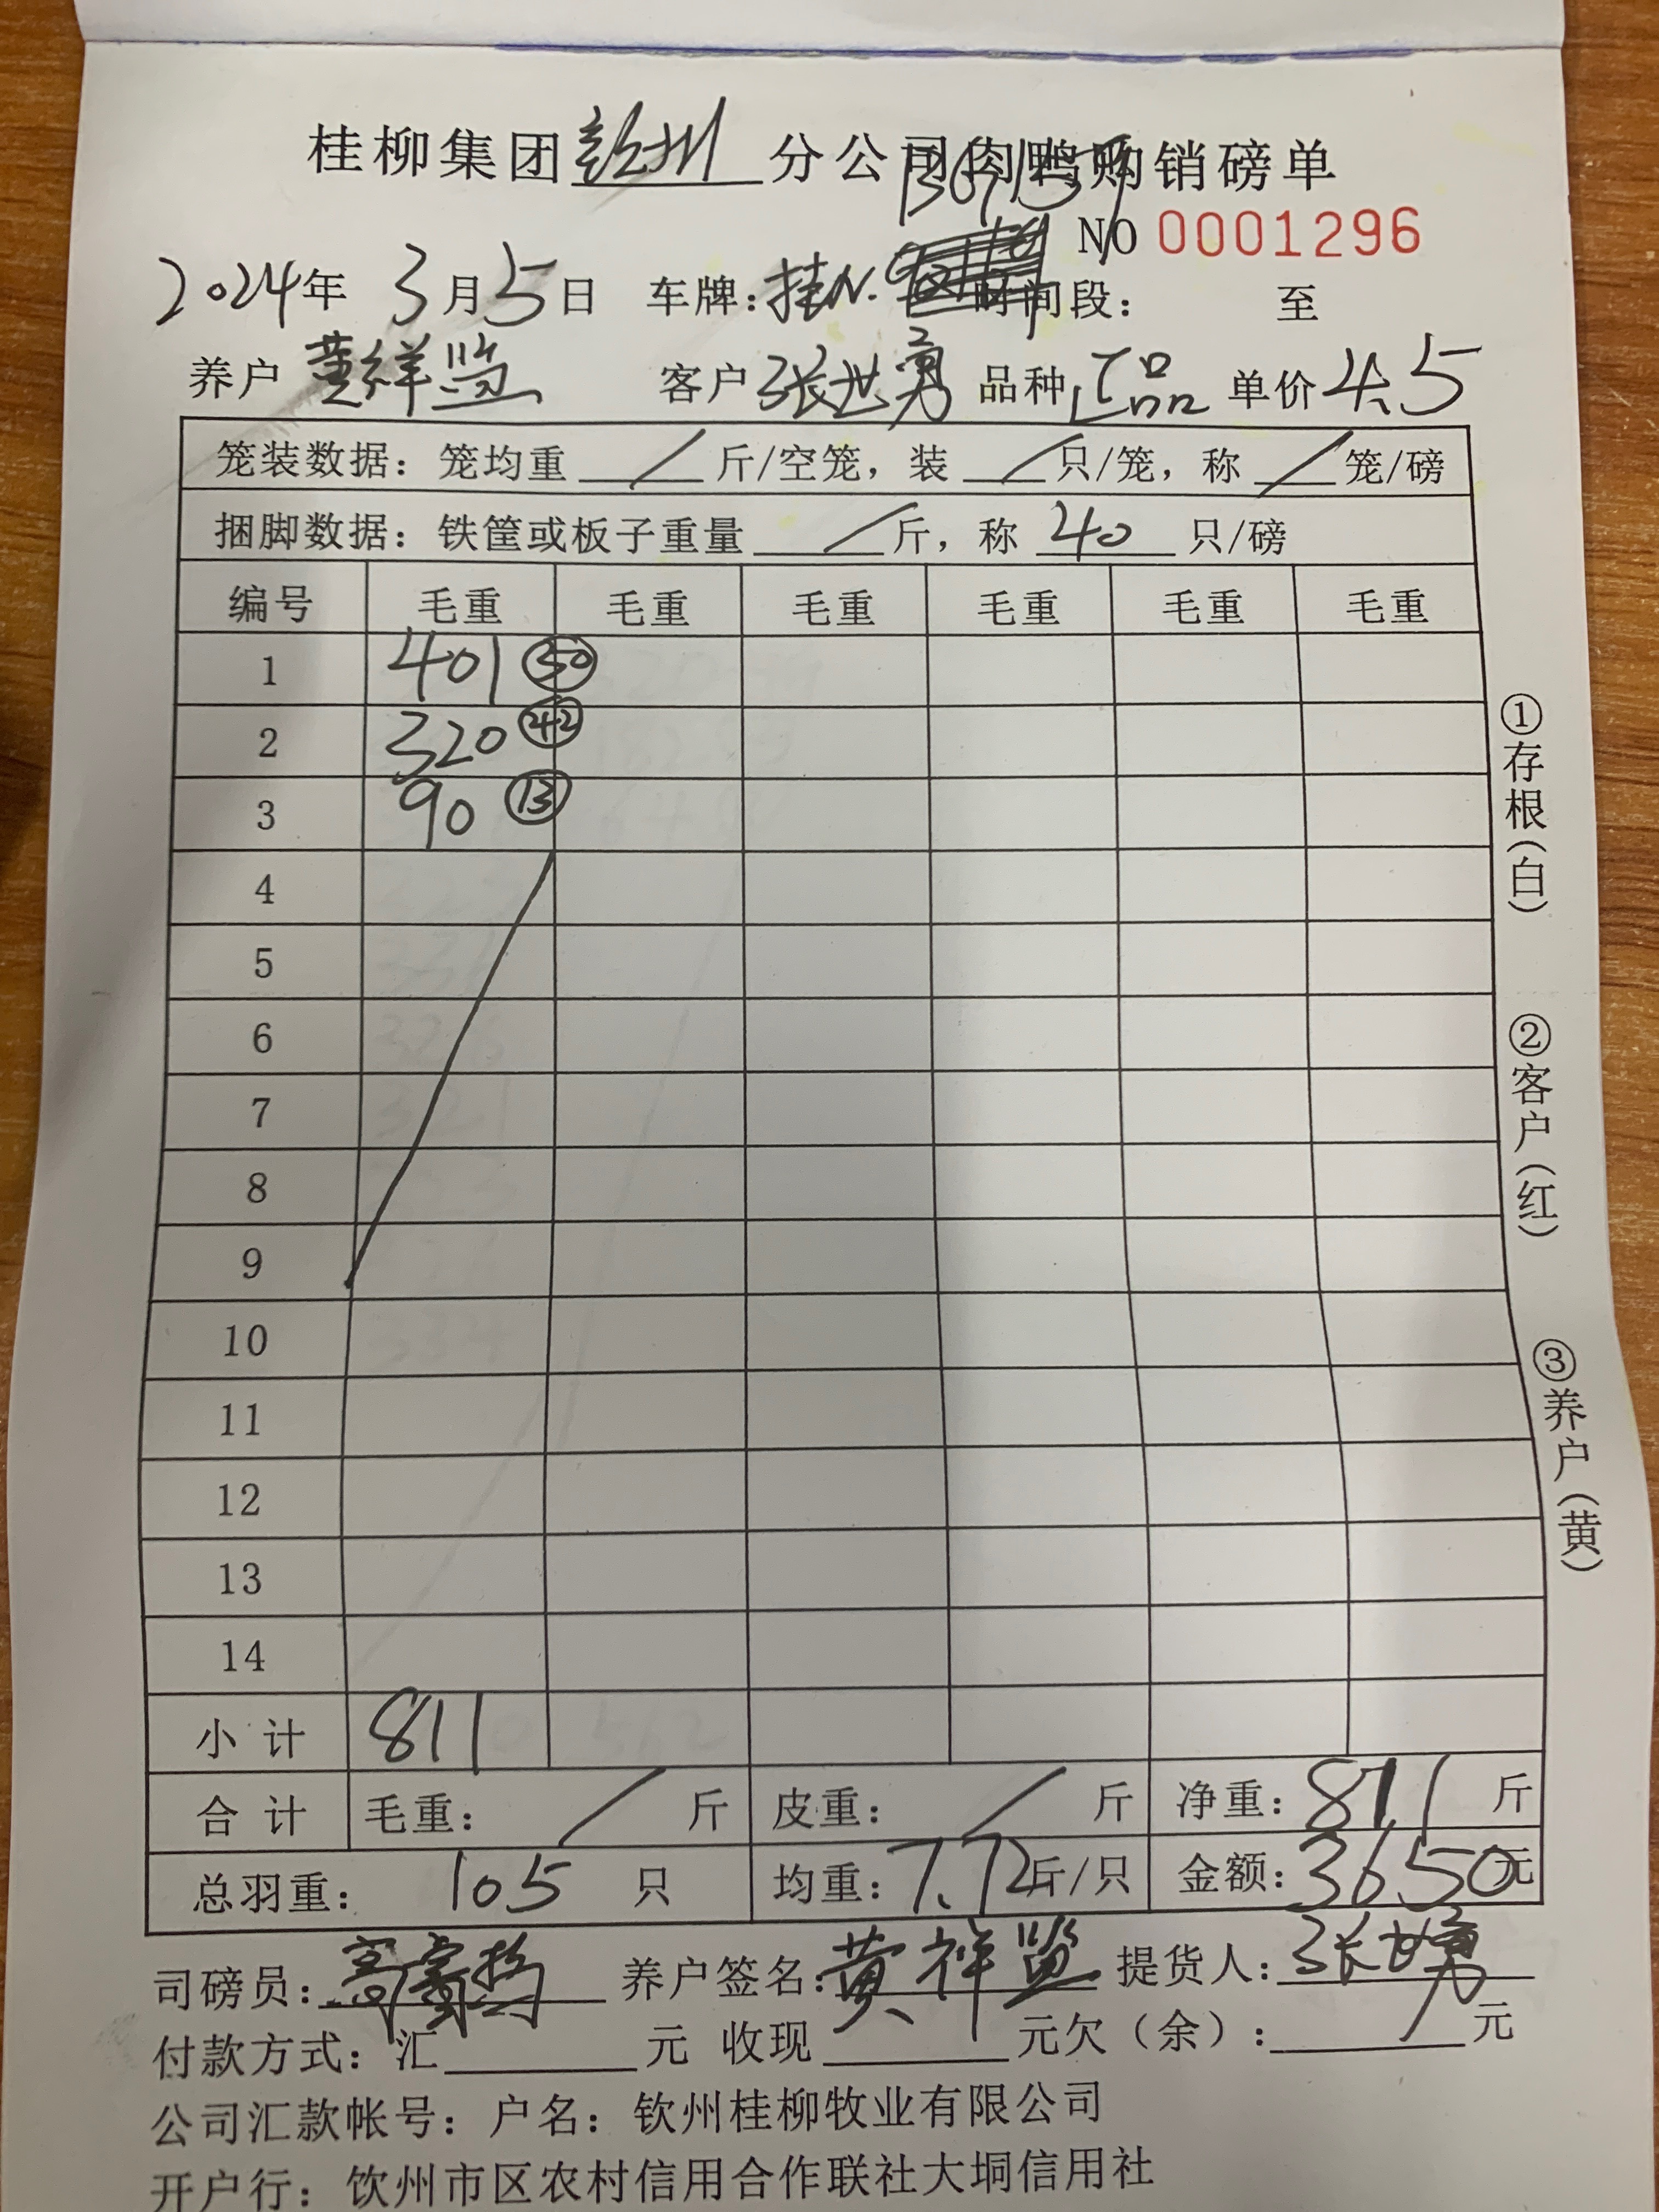 桂柳集团钦州分公司肉鸭购销磅单
NO 0001296
2024年 3月5日 车牌:桂N. 时间段: 至
养户 黄祥监 客户 张世勇 品种 正品 单价 4.5
笼装数据: 笼均重 / 斤/空笼, 装 / 只/笼, 称 / 笼/磅
捆脚数据: 铁筐或板子重量 / 斤, 称 40 只/磅
编号 毛重 毛重 毛重 毛重 毛重 毛重
1 401 ㊿
2 320 ㊷
3 90 ⑬
4
5
6
7
8
9
10
11
12
13
14
小 计 811
合 计 毛重: / 斤 皮重: / 斤 净重: 811 斤
总羽重: 105 只 均重: 7.72斤/只 金额: 3650元
司磅员: 养户签名: 黄祥监 提货人: 张世勇
付款方式: 汇 元 收现 元欠(余): 元
公司汇款帐号: 户名: 钦州桂柳牧业有限公司
开户行: 钦州市区农村信用合作联社大垌信用社
①存根(白)
②客户(红)
③养户(黄)